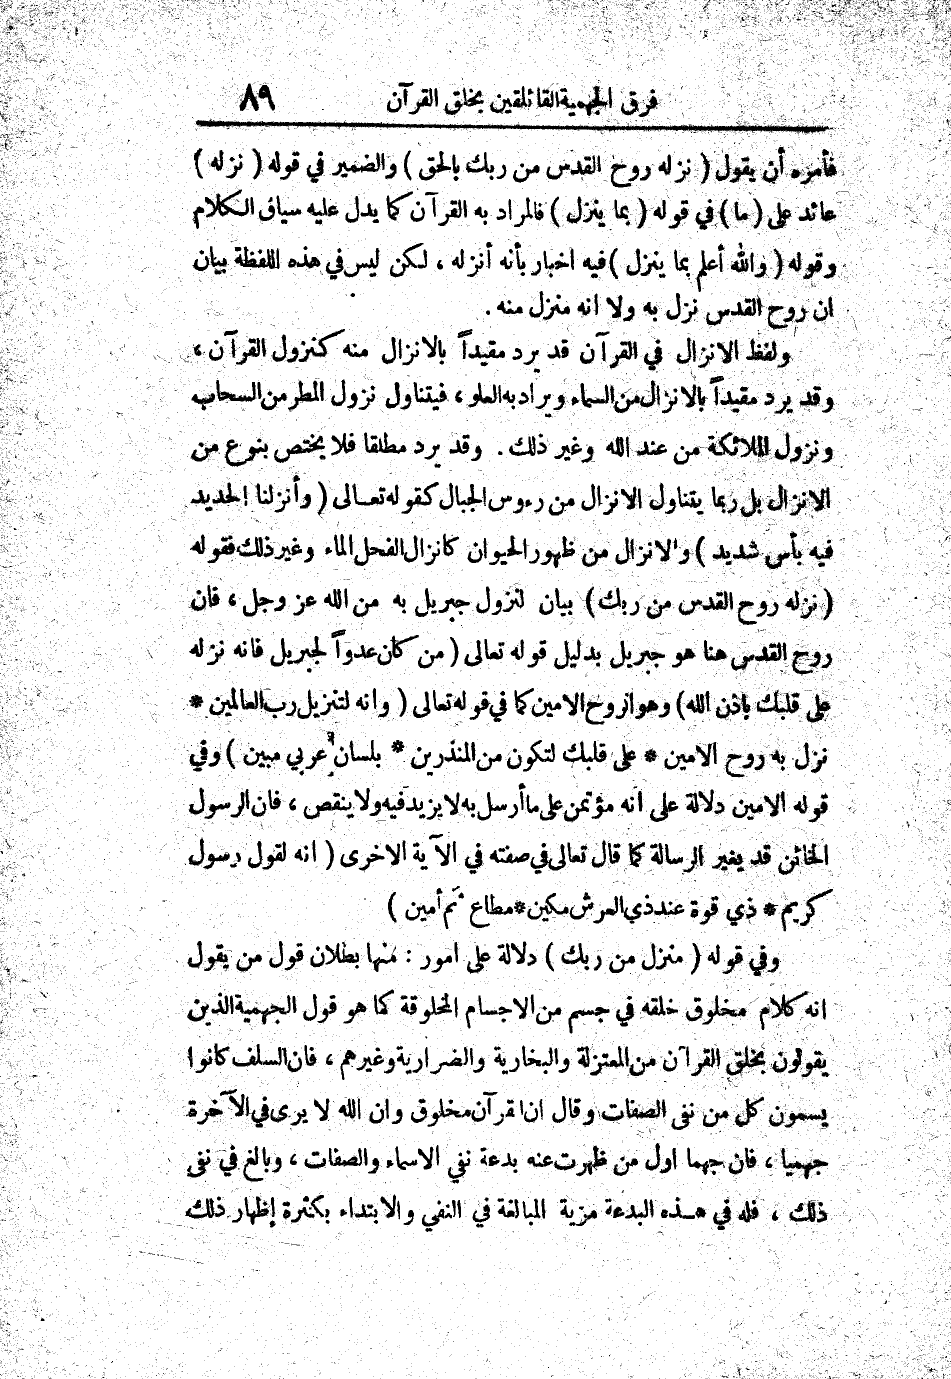 فرق الجهمية القائلقين بخلق القرآن ٨٩
فأمره أن يقول ( نزله روح القدس من ربك بالحق ) والضمير في قوله ( نزله )
عائد على ( ما ) في قوله ( بما ينزل ) فالمراد به القرآن كما يدل عليه سياق الكلام
وقوله ( والله أعلم بما ينزل ) فيه اخبار بأنه أنزله ، لكن ليس في هذه اللفظة بيان
ان روح القدس نزل به ولا انه منزل منه .
ولفظ الانزال في القرآن قد يرد مقيداً بالانزال منه كنزول القرآن ،
وقد يرد مقيداً بالانزال من السماء ويراد به العلو ، فيتناول نزول المطر من السحاب
ونزول الملائكة من عند الله وغير ذلك . وقد يرد مطلقا فلا يختص بنوع من
الانزال بل ربما يتناول الانزال من رءوس الجبال كقوله تعـالى ( وأنزلنا الحديد
فيه بأس شديد ) والانزال من ظهور الحيوان كانزال الفحل الماء وغير ذلك فقوله
( نزله روح القدس من ربك ) بيان لنزول جبريل به من الله عز وجل ، فان
روح القدس هنا هو جبريل بدليل قوله تعالى ( من كان عدواً لجبريل فانه نزله
على قلبك باذن الله ) وهو الروح الامين كما في قوله تعالى ( وانه لتنزيل رب العالمين *
نزل به روح الامين * على قلبك لتكون من المنذرين * بلسان عربي مبين ) وفي
قوله الامين دلالة على انه مؤتمن على ما أرسل به لا يزيد فيه ولا ينقص ، فان الرسول
الخائن قد يغير الرسالة كما قال تعالى في صفته في الآية الاخرى ( انه لقول رسول
كريم * ذي قوة عند ذي العرش مكين * مطاع ثم أمين )
وفي قوله ( منزل من ربك ) دلالة على امور : منها بطلان قول من يقول
انه كلام مخلوق خلقه في جسم من الاجسام المخلوقة كما هو قول الجهمية الذين
يقولون بخلق القرآن من المعتزلة والبخارية والضرارية وغيرهم ، فان السلف كانوا
يسمون كل من نفى الصفات وقال ان القرآن مخلوق وان الله لا يرى في الآخرة
جهميا ، فان جهما اول من ظهرت عنه بدعة نفي الاسماء والصفات ، وبالغ في نفى
ذلك ، فله في هـذه البدعة مزية المبالغة في النفي والابتداء بكثرة إظهار ذلك